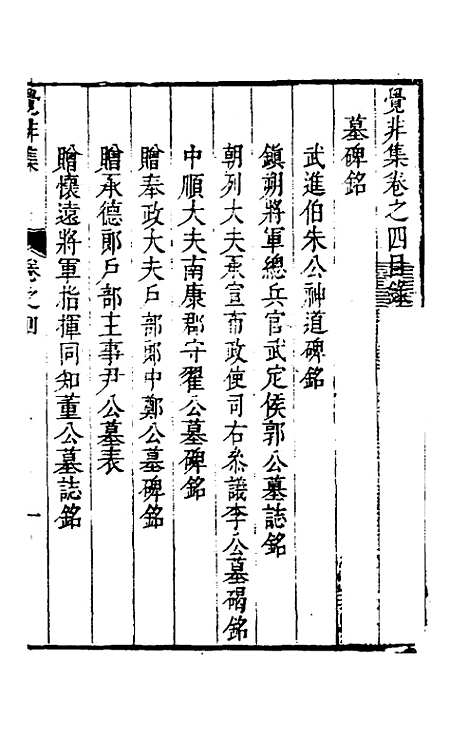 覺非集卷之四目錄
墓碑銘
武進伯朱公神道碑銘
鎮朔將軍總兵官武定侯郭公墓誌銘
朝列大夫承宣布政使司右參議李公墓碣銘
中順大夫南康郡守翟公墓碑銘
贈奉政大夫戶部郎中鄭公墓碑銘
贈承德郎戶部主事尹公墓表
贈懷遠將軍指揮同知董公墓誌銘
覺非集 卷之四 一